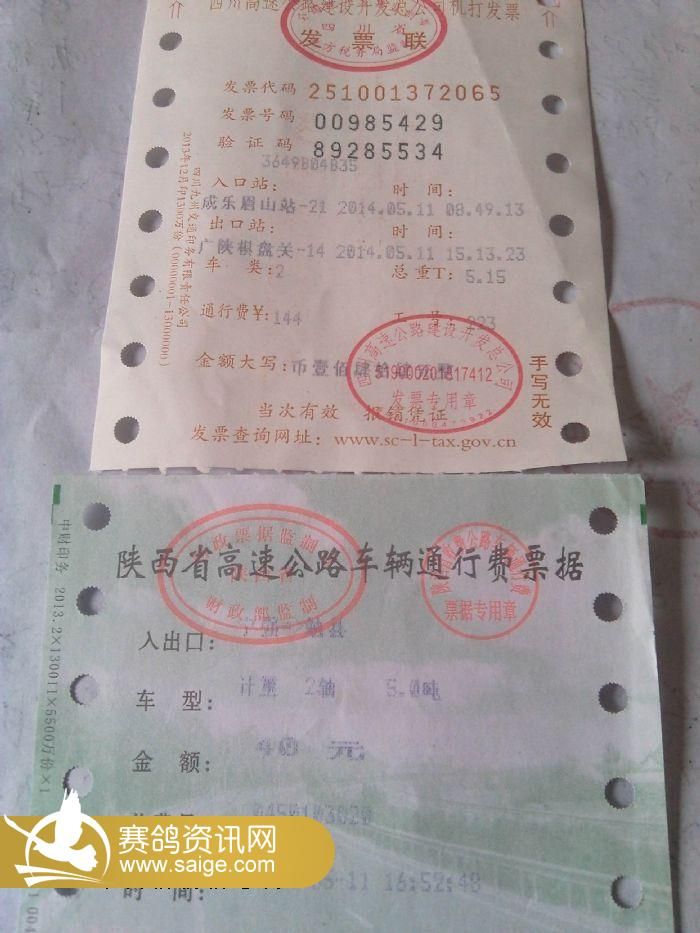 四川高速公路建设开发总公司机打发票
发票联
发票代码 251001372065
发票号码 00985429
验证码 89285534
3649B04B35
入口站: 时间:
成乐眉山站-21 2014.05.11 08.49.13
出口站: 时间:
广陕棋盘关-14 2014.05.11 15.13.23
车类:2 总重T: 5.15
通行费¥:144 工号: 223
金额大写: 币壹佰肆拾
四川高速公路建设开发总公司
发票专用章
当次有效 报销凭证
发票查询网址: www.sc-l-tax.gov.cn
手写无效
四川九州交通印务有限责任公司
2013年12月印1300万份(00000001-13000000)
陕西省高速公路车辆通行费票据
政票据监制
财政部监制
票据专用章
入出口:
车型: 计重 2轴 5.0吨
金额: 40 元
0450103020
时间: 11 16:52:48
中财印务 2013.2×130011×5500万份×1
赛鸽资讯网
www.saige.com